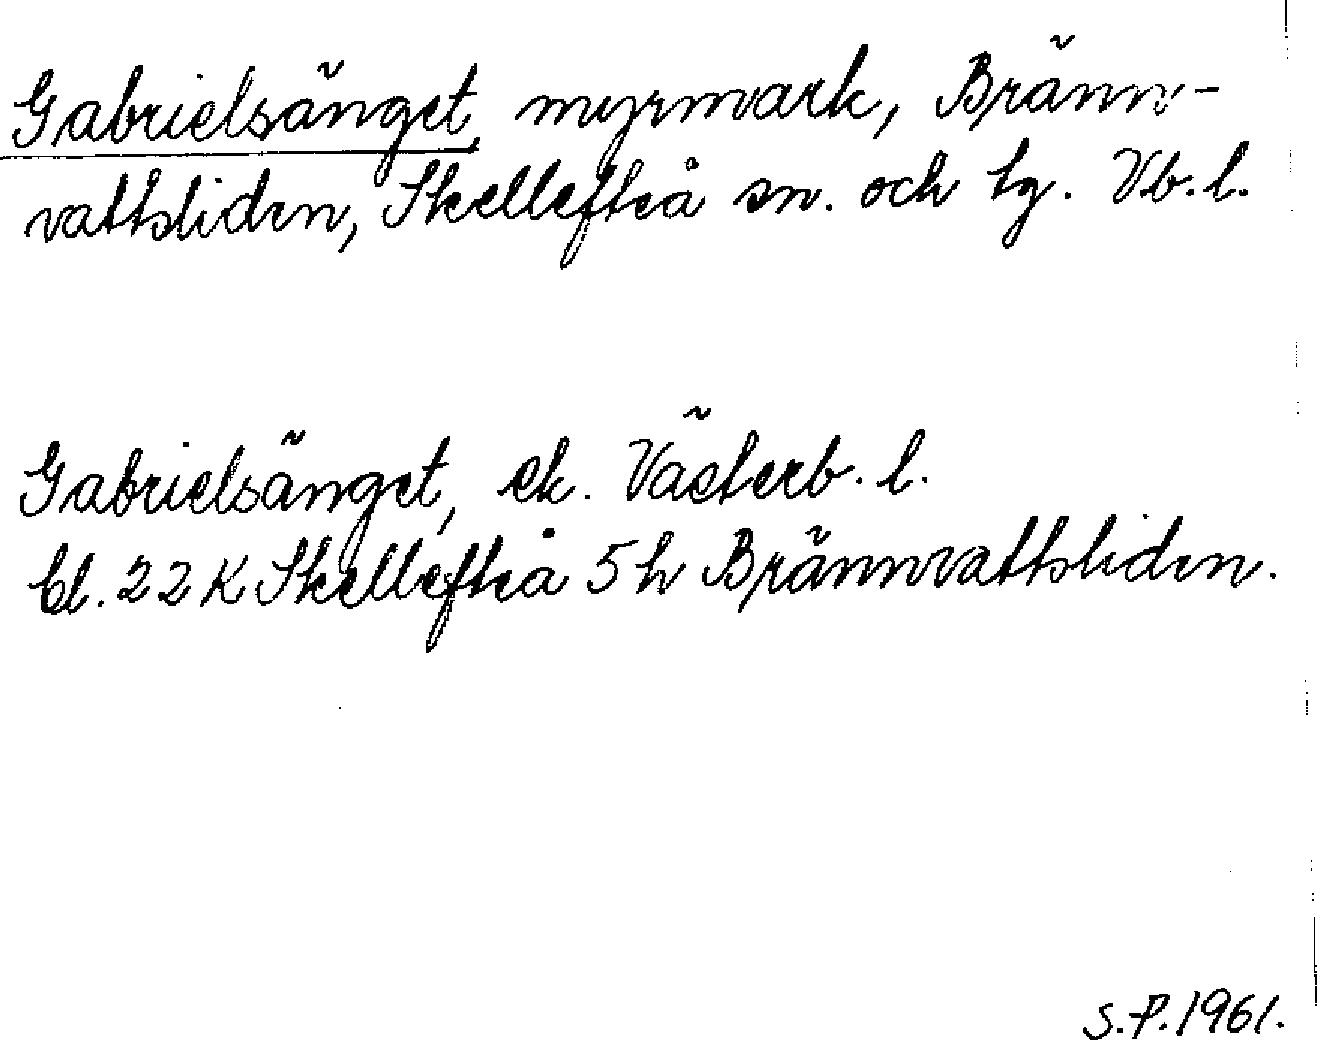 Gabrielsänget, myrmark, Bränn-
vattsliden, Skellefteå sn. och tg. Vb. l.
Gabrielsänget, ek. Västerb. l.
bl. 22 K Skellefteå 5 h Brännvattsliden.
S.P. 1961.